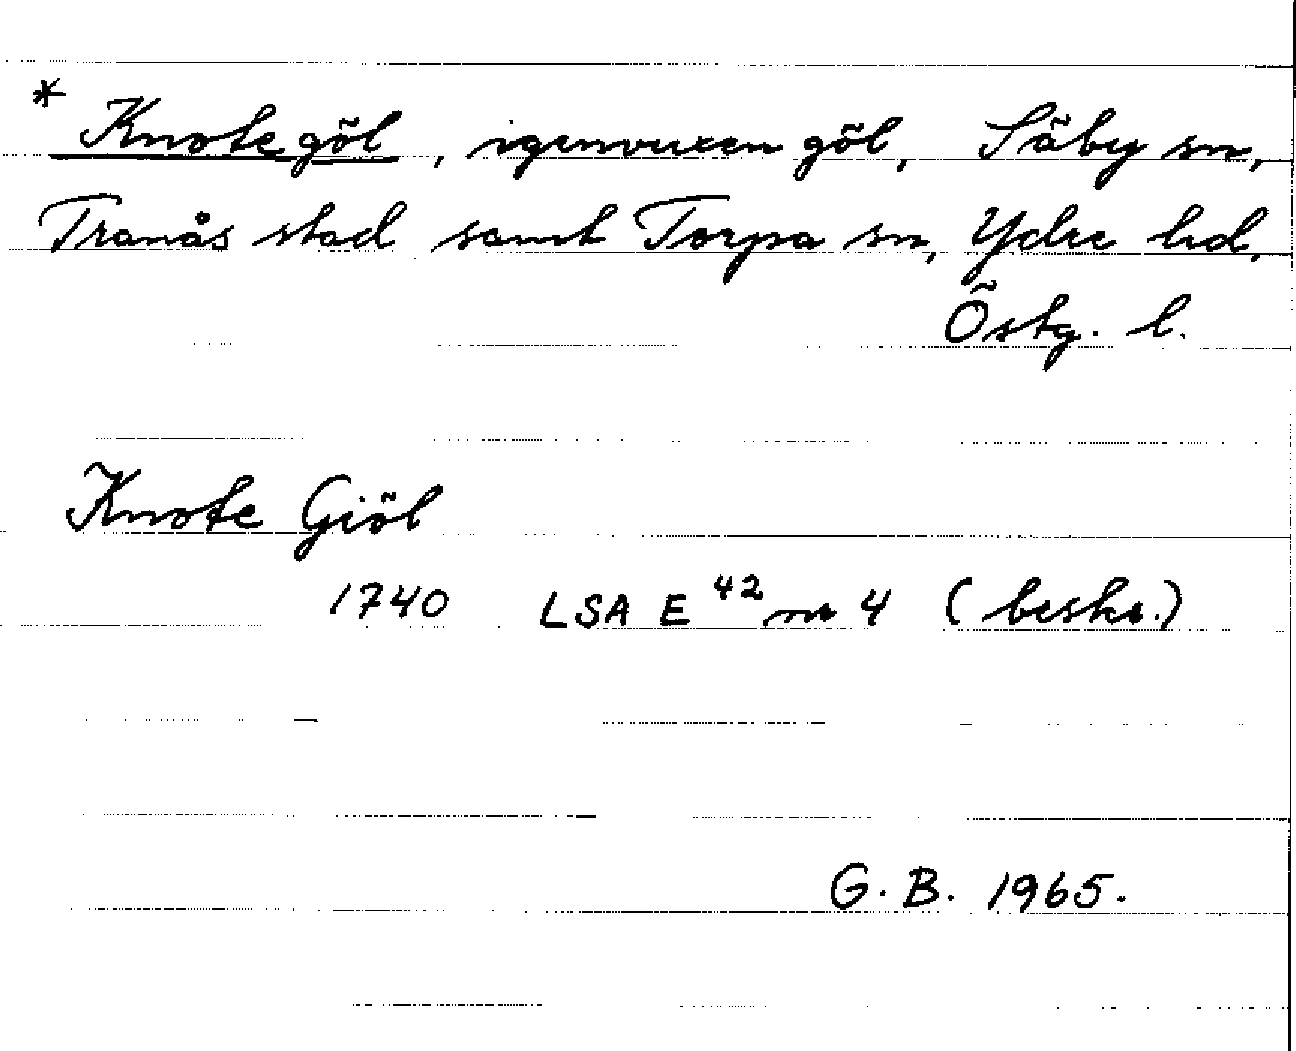 * Knotegöl, igenvuxen göl, Säby sn,
Tranås stad samt Torpa sn, Ydre hd,
Östg. l.
Knote Giöl
1740 LSA E 42 nr 4 (beskr.)
G. B. 1965.